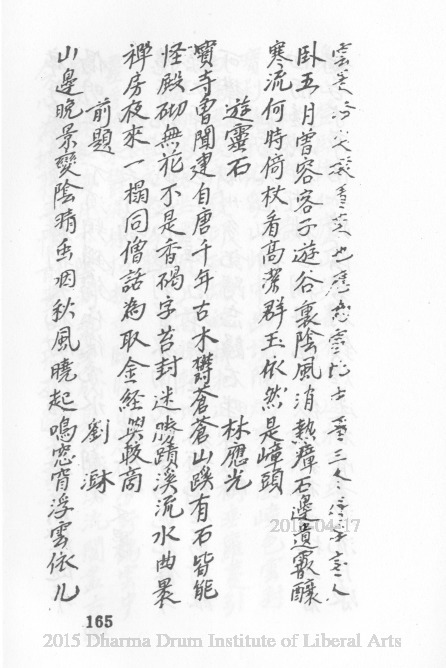 卧五月曾容客子遊谷裏陰風消熱瘴石邊遺霰釀
寒流何時倚杖看高潔群玉依然是嶂頭
遊靈石 林應光
寶寺曾聞建自唐千年古木鬱蒼蒼山蹊有石皆能
怪殿砌無花不是香碣字苔封迷蹟溪流水曲裊
禪房夜來一榻同僧話為取金經與較商
前題 劉
山邊晚景變陰晴烟秋風曉起鳴窓宵浮雲依几
165
2015-04-17
2015 Dharma Drum Institute of Liberal Arts